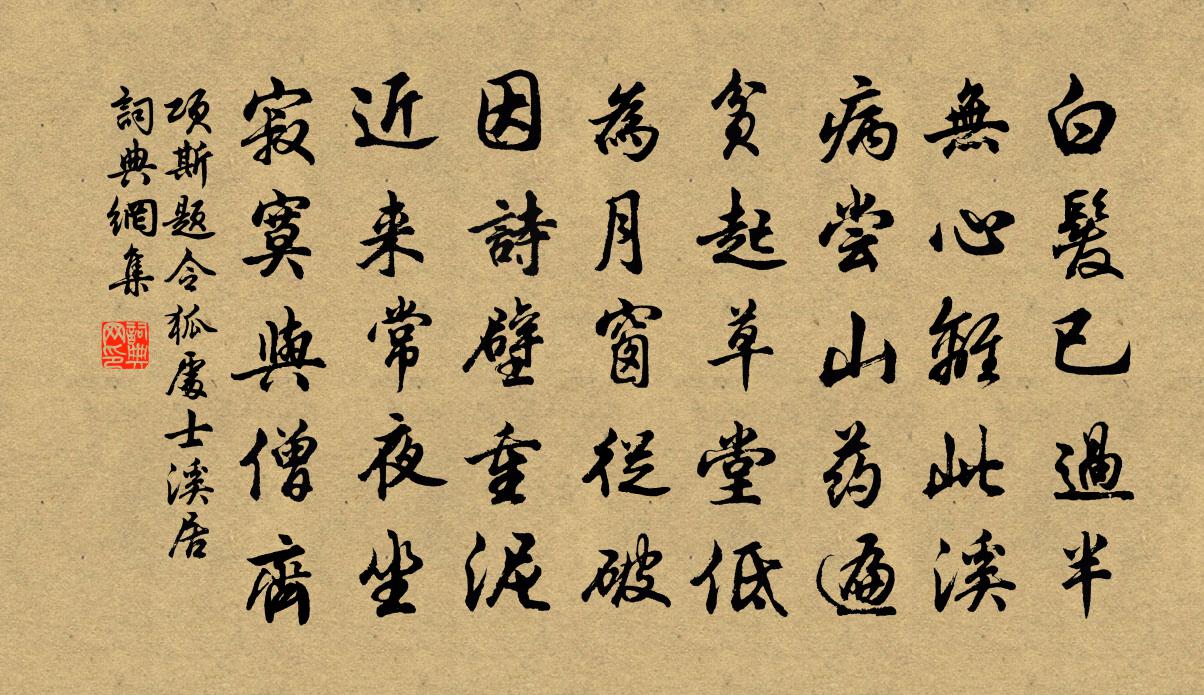 白髮已過半
無心離此溪
病尝山药遍
貧起草堂低
為月窗從破
因詩壁重泥
近来常夜坐
寂寞與僧齊
项斯题令狐處士溪居
詞典網集
詞典网印